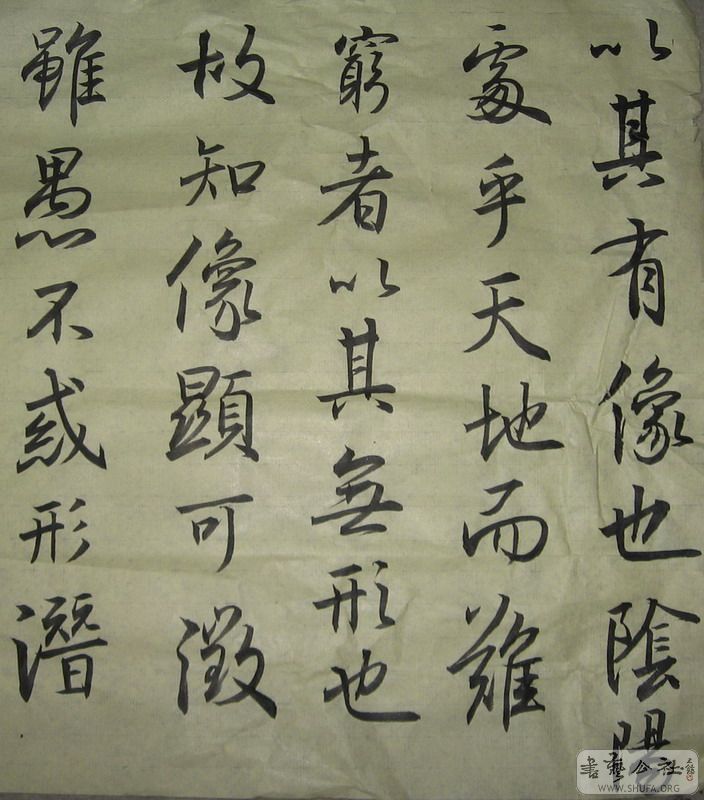 以其有像也陰陽
處乎天地而難
窮者以其無形也
故知像顯可徵
雖愚不惑形潛
書藝公社
WWW.SHUFA.ORG